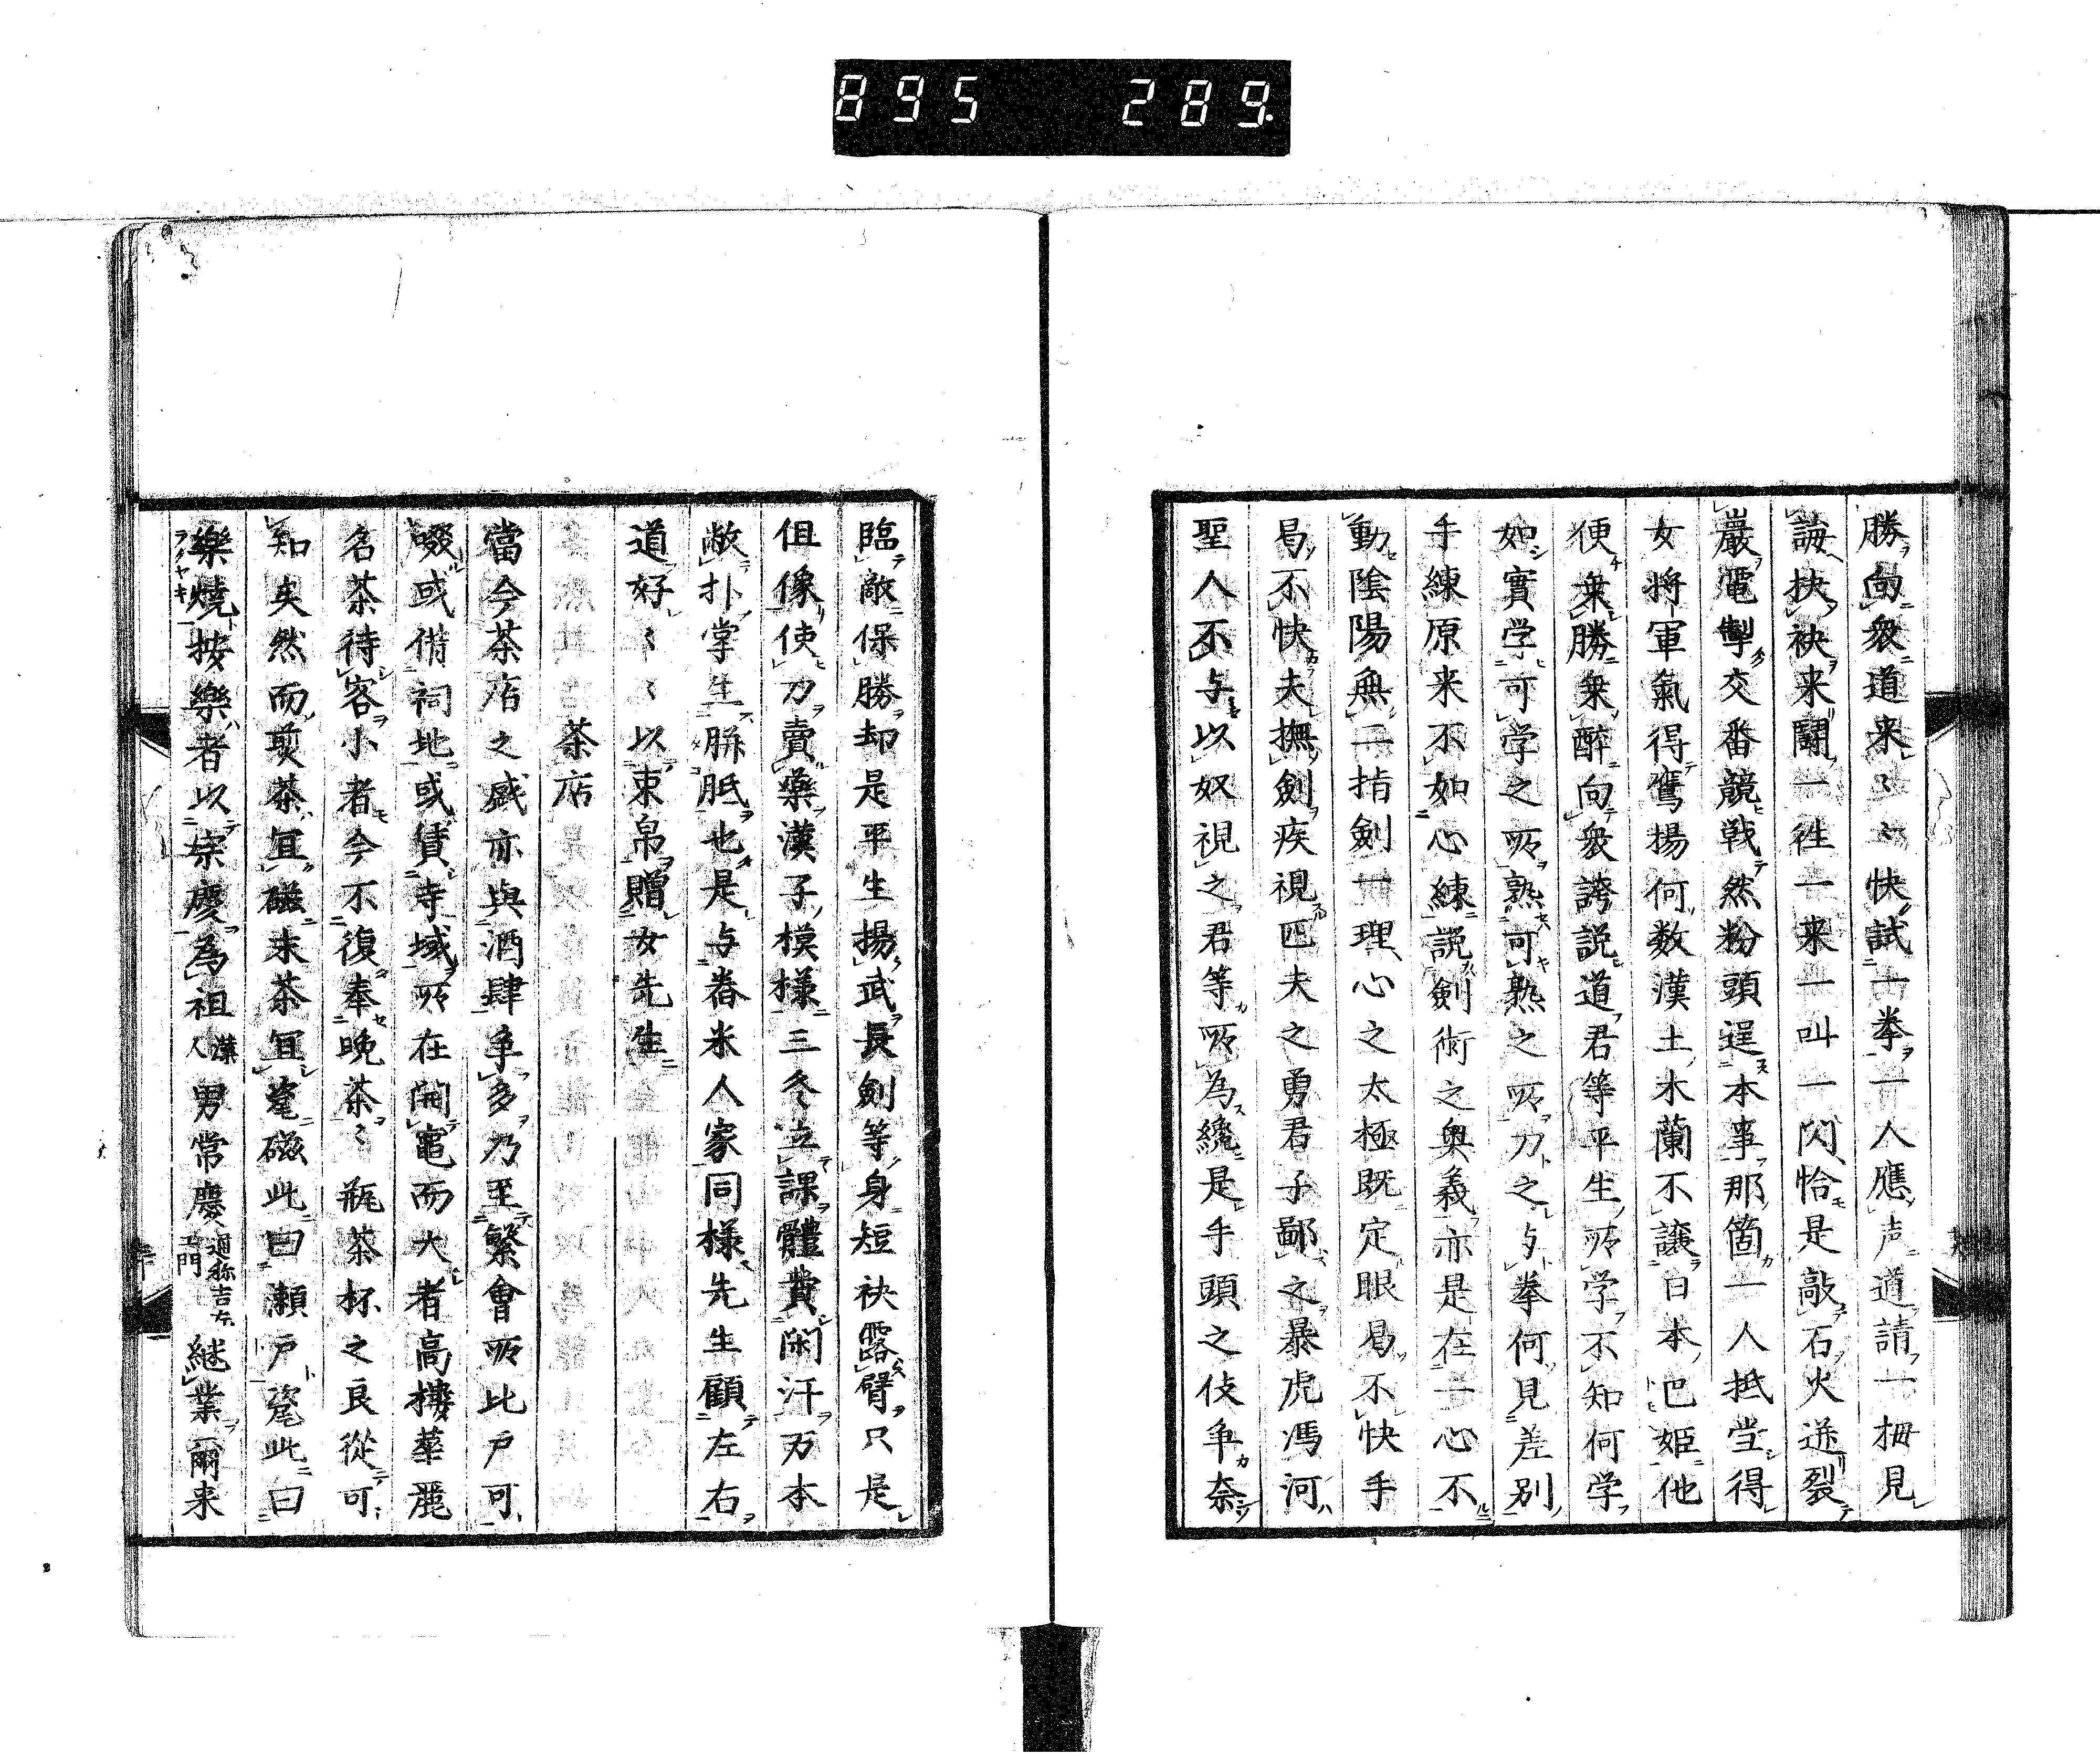 895 289.
勝向衆道来〻〻快試一拳一人應声道請一拇見
誨抉袂来闘一徃一来一叫一閃恰是敲石火迸裂
巖電掣交番競戦然粉頭逞本事那箇一人抵当得
女将軍氣得鷹揚何数漢土木蘭不譲日本巴姫他
便乗勝乗醉向衆誇説道君等平生所学不知何学
如實学可学之所熟可熟之所刀之与拳何見差別
手練原来不如心練説剣術之奥義亦是在一心不
動陰陽無二指劍一理心之太極既定眼昜不快手
昜不快夫撫劍疾視匹夫之勇君子鄙之暴虎馮河
聖人不与以奴視之君等所為纔是手頭之伎争奈
臨敵保勝却是平生揚武長剣等身短袂露臂只是
伹像使刀賣藥漢子模様三冬立課體費閑汗万本
敝扑掌生胼胝也是与舂米人家同様先生顧左右
道好〻〻以束帛贈女先生
茶店
當今茶店之盛亦與酒肆争多乃至繁會所比戸可
啜或借祠地或賃寺域所在開竃而大者高樓華麗
名茶待客小者今不復奉晩茶〻瓶茶杯之良從可
知矣然而煎茶宜磁末茶宜窰磁此曰瀬戸窰此曰
樂燒按樂者以宗慶為祖漢人男常慶通称吉左ヱ門継業爾来
ラクヤキ